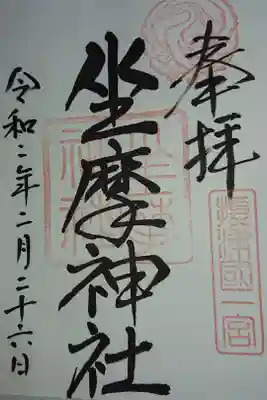 奉拝
摂津國一宮
坐摩神社
令和二年二月二十六日